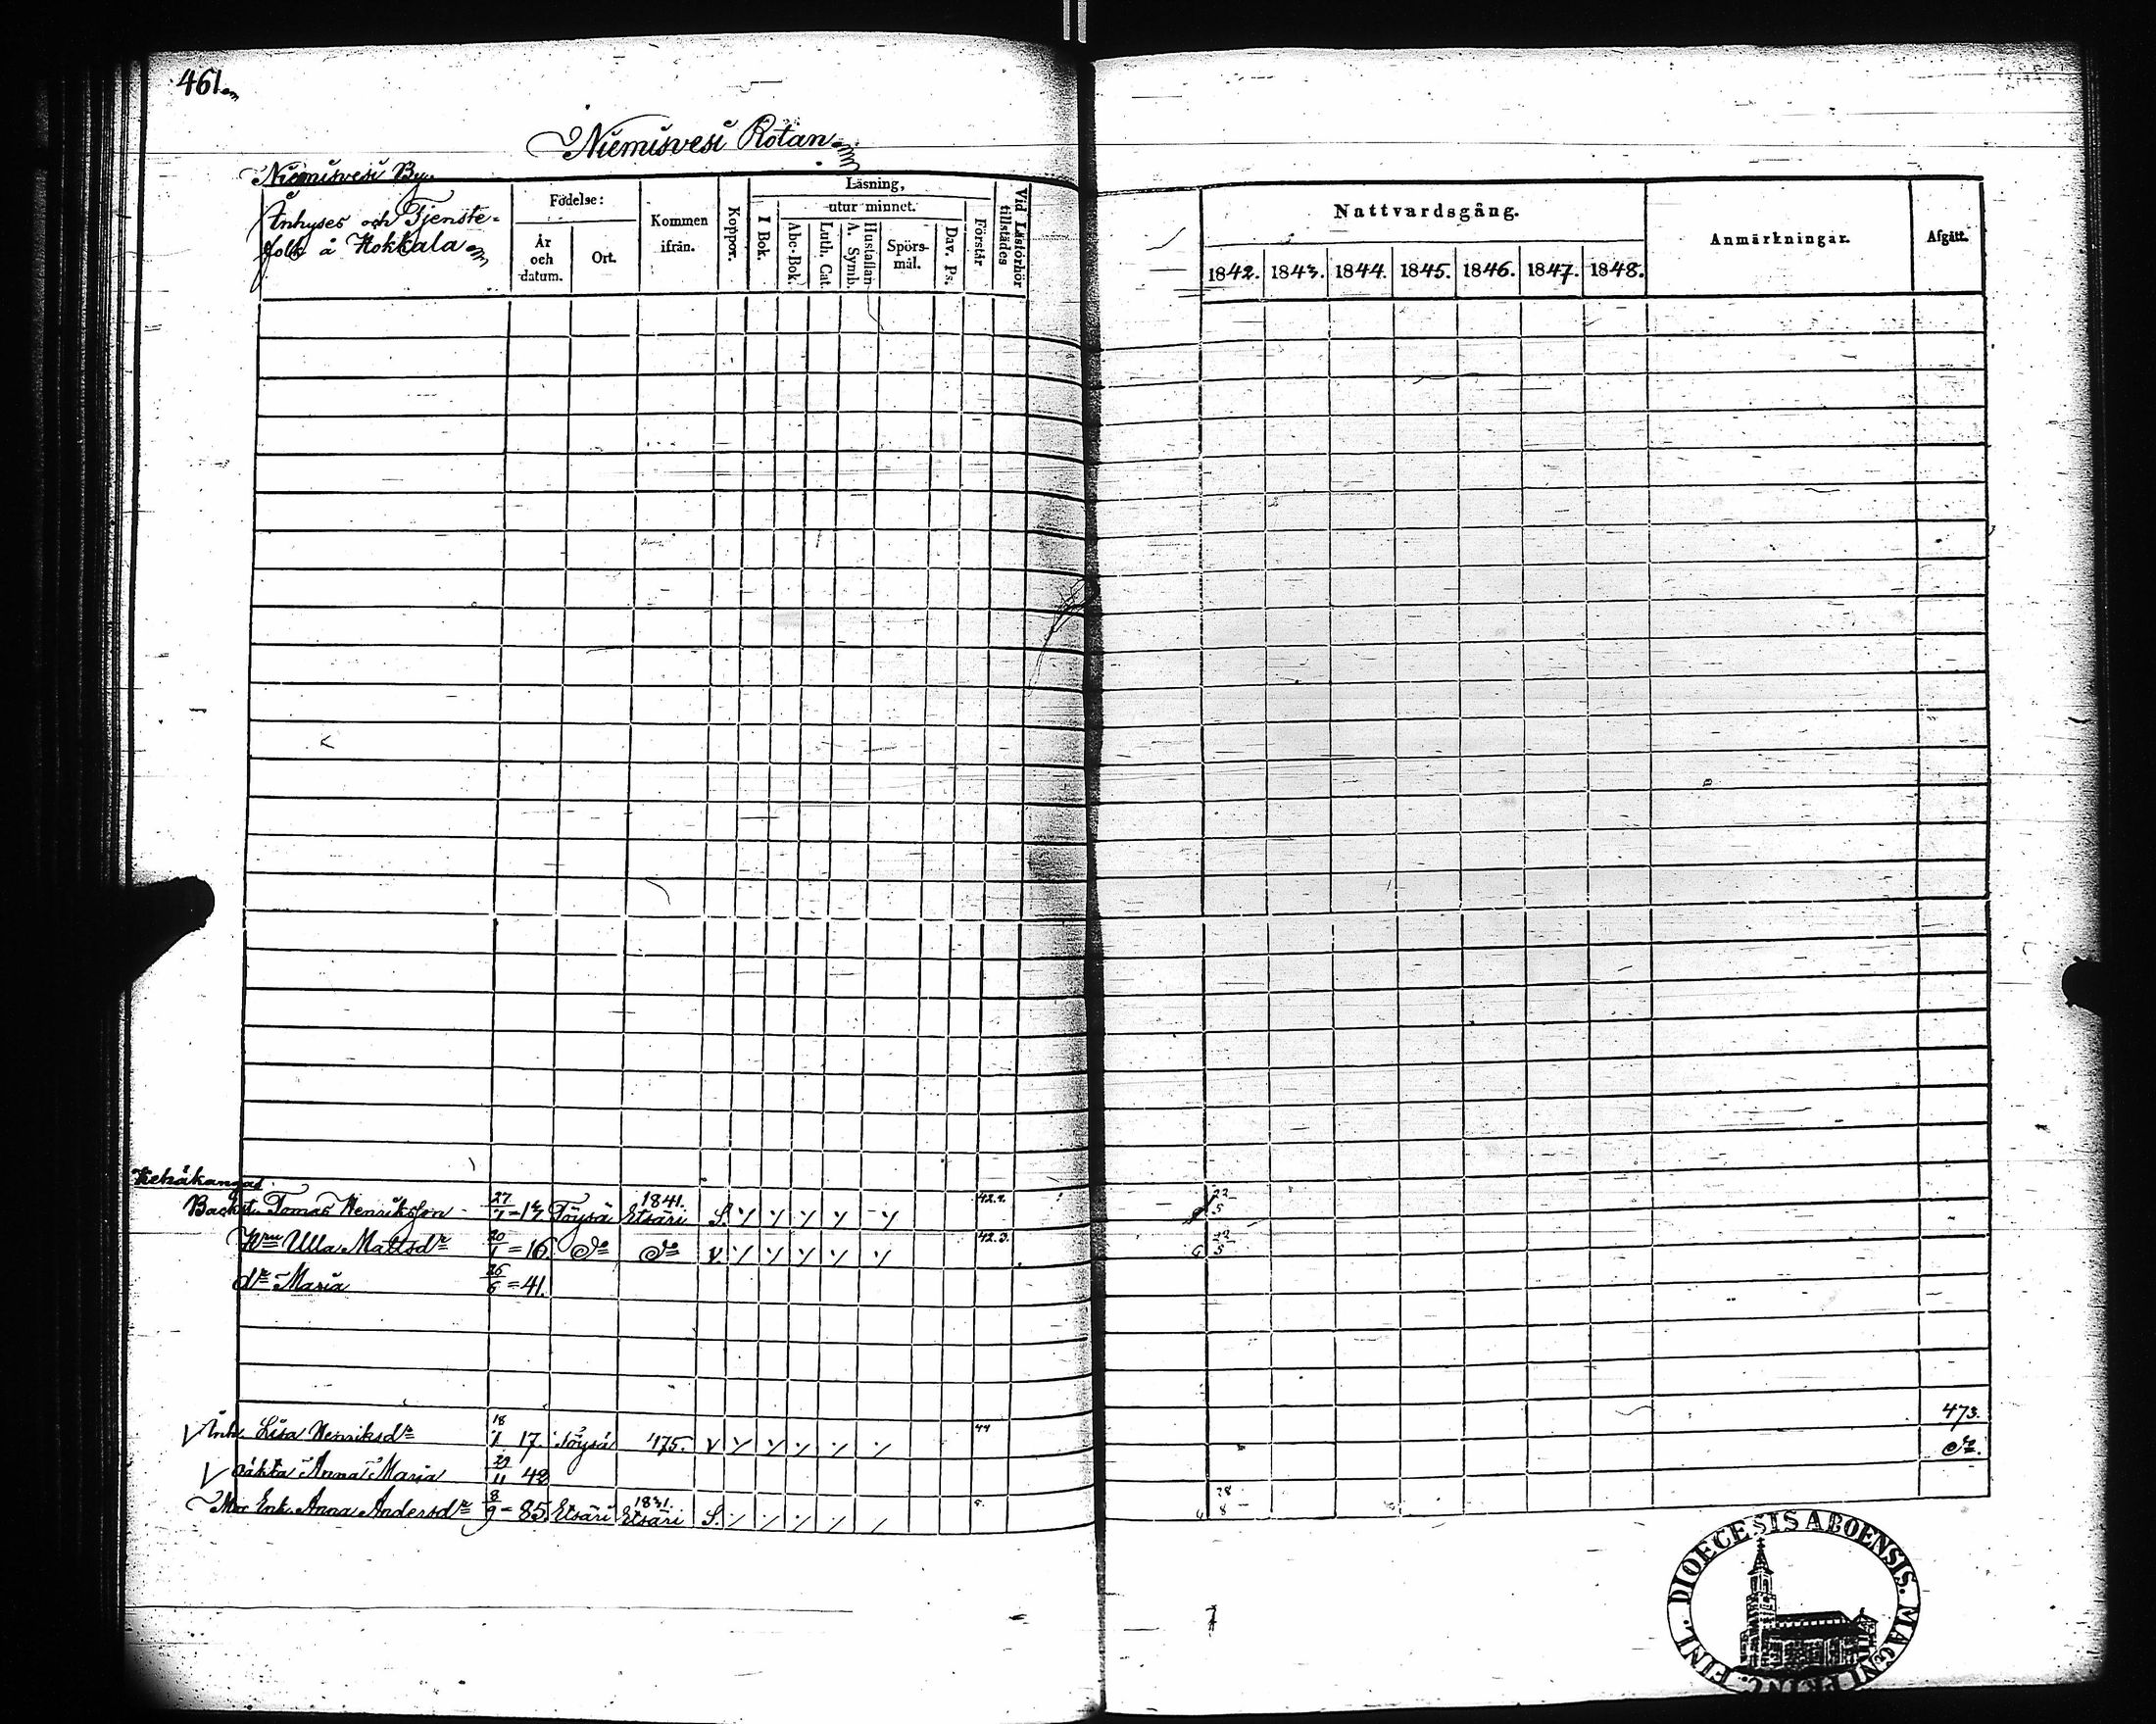 461.
Niemisvesi Rotan
Niemisvesi By.
Inhyses och Tjenste-
folk å Hokkala
Födelse:
År
och
datum.
Ort.
Kommen
ifrån.
Koppor.
Läsning,
utur minnet.
I Bok.
Abc-Bok.
Luth. Cat.
Hustaflan
A. Symb.
Spörs-
mål.
Dav. Ps.
Förstår
Vid Läsförhör
tillstädes
Nattvardsgång.
1842. 1843. 1844. 1845. 1846. 1847. 1848.
Anmärkningar.
Afgått.
Backst. Tomas Henriksson 27/1 - 17 Töysä 1841. Etsäri S. 42.2. 22/5
Hru Ulla Mattsdr 20/1 = 16. do do v. 42.3. 6 22/5
dr Maria 26/6 = 41.
473.
Inh. Lisa Henriksdr 18/1 17. Töysä 475. v 44 do.
oäkta Anna Maria 29/11 42
Mor Enk. Anna Andersdr 8/9 - 85. Etsäri 1831. Etsäri S. 6 28/8
DIOECESIS ABOENSIS. MAGNI PRINC. FINL.